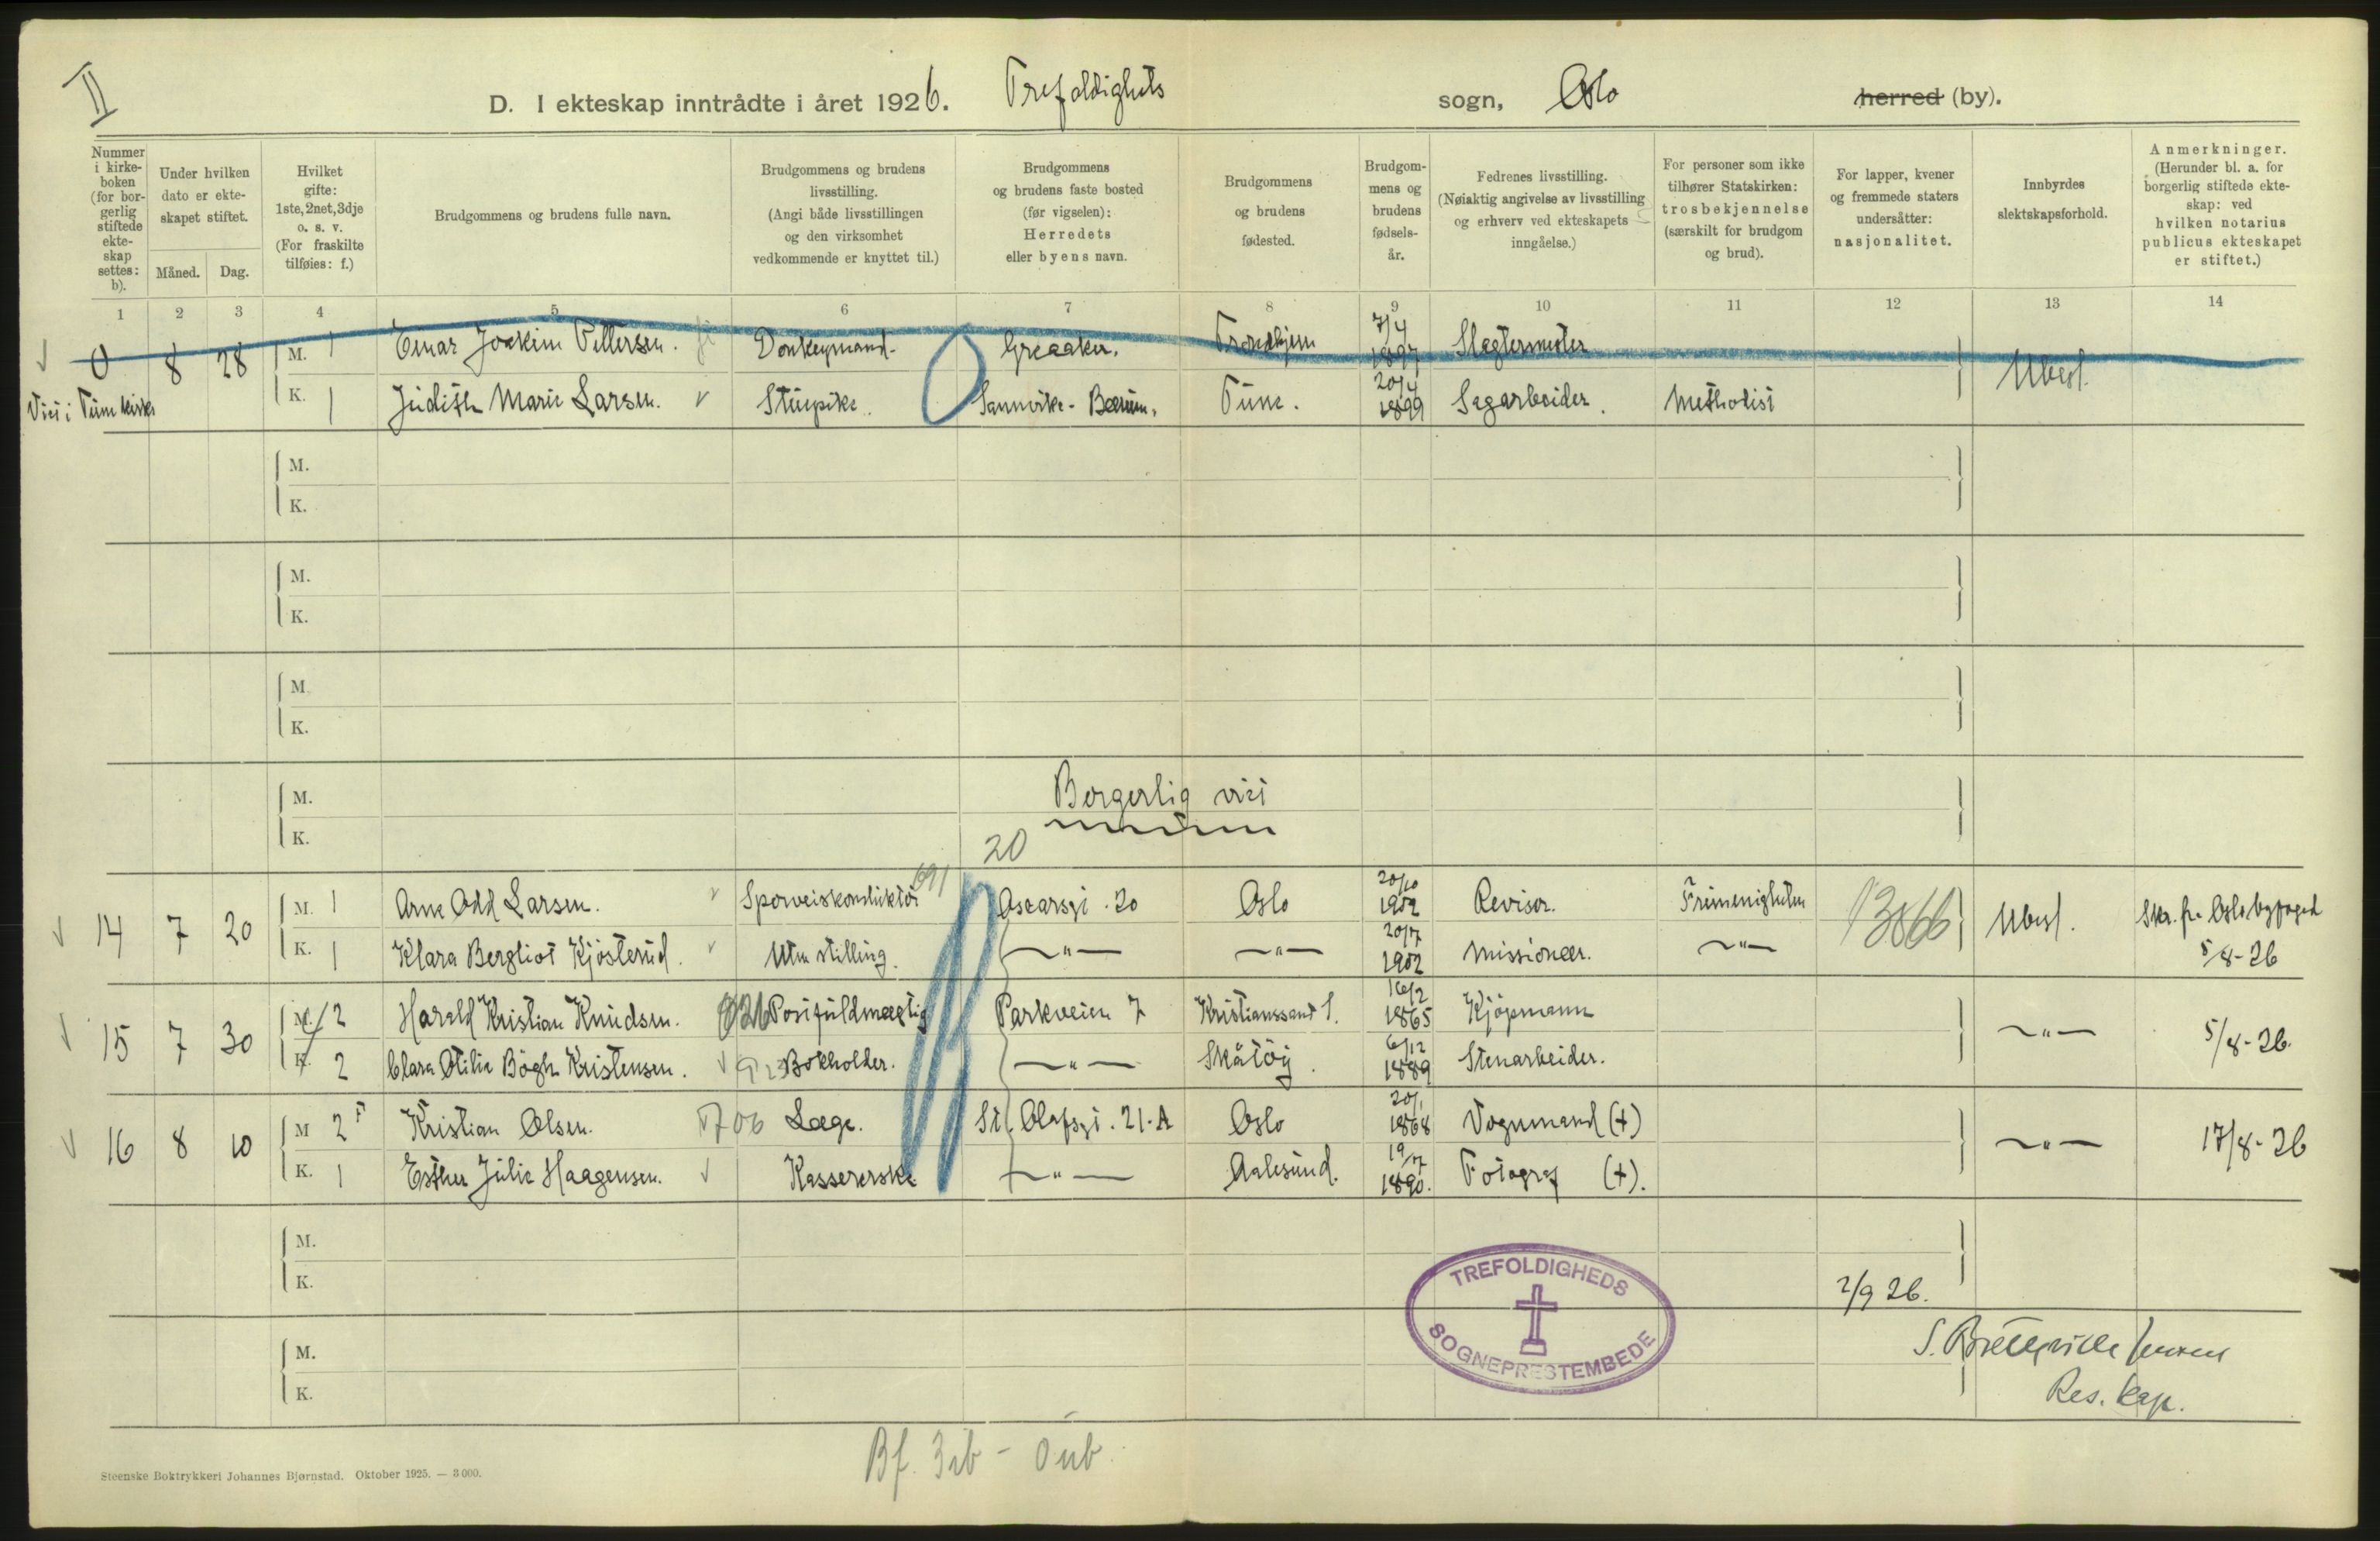 II
D. I ekteskap inntrådte i året 1926. Trefoldighets sogn, Oslo herred (by).
Nummer i kirke-boken (for bor-gerlig stiftede ekte-skap settes: b).
Under hvilken dato er ekte-skapet stiftet.
Måned. Dag.
Hvilket gifte: 1ste, 2net, 3dje o. s. v. (For fraskilte tilføies: f.)
Brudgommens og brudens fulle navn.
Brudgommens og brudens livsstilling. (Angi både livsstillingen og den virksomhet vedkommende er knyttet til.)
Brudgommens og brudens faste bosted (før vigselen): Herredets eller byens navn.
Brudgommens og brudens fødested.
Brudgom-mens og brudens fødsels-år.
Fedrenes livsstilling. (Nøiaktig angivelse av livsstilling og erhverv ved ekteskapets inngåelse.)
For personer som ikke tilhører Statskirken: trosbekjennelse (særskilt for brudgom og brud).
For lapper, kvener og fremmede staters undersåtter: nasjonalitet.
Innbyrdes slektskapsforhold.
Anmerkninger. (Herunder bl. a. for borgerlig stiftede ekte-skap: ved hvilken notarius publicus ekteskapet er stiftet.)
1 2 3 4 5 6 7 8 9 10 11 12 13 14
0 8 28 M. 1 Einar Joakim Pettersen. Donkeymand. Greaaker. Trondhjem 7/4 1897 Slagtermester Ubesl.
Viet i Tune kirke K. 1 Judith Marie Larsen. Stuepike. Sannvika - Bærum. Tune. 20/4 1899 Sagarbeider. Methodist
M.
K.
M.
K.
M.
K.
M. Borgerlig viet
K.
20
14 7 20 M. 1 Arne Odd Larsen. Sporveiskonduktør 691 Oscarsgt. 20 Oslo 20/10 1902 Revisor. Frimenigheten 13866 Ubesl. Skr. fra Oslo byfoged
K. 1 Klara Bergliot Kjøsterud. Uten stilling. —"— —"— 20/7 1902 Missionær. —"— 5/8-26
15 7 30 M. 2 Harald Kristian Knudsen. 826 Postfuldmægtig Parkveien 7 Kristianssand S. 16/2 1865 Kjøpmann —"— 5/8-26.
K. 2 Clara Otilie Bøgh Kristensen. 923 Bokholder. —"— Skåtøy. 6/12 1889 Stenarbeider.
16 8 10 M 2 f Kristian Olsen. 706 Læge. St. Olafsgt. 21.A Oslo 20/1 1868 Vognmand (+) —"— 17/8-26
K. 1 Esther Julie Haagensen. Kassererske —"— Aalesund. 19/7 1890. Fotograf (+).
M.
K.
2/9 26.
TREFOLDIGHEDS SOGNEPRESTEMBEDE
M.
K.
S. Bretteville Jensen
Res. kap.
Bf. 3 ib - 0 ub.
Steenske Boktrykkeri Johannes Bjørnstad. Oktober 1925. — 3000.